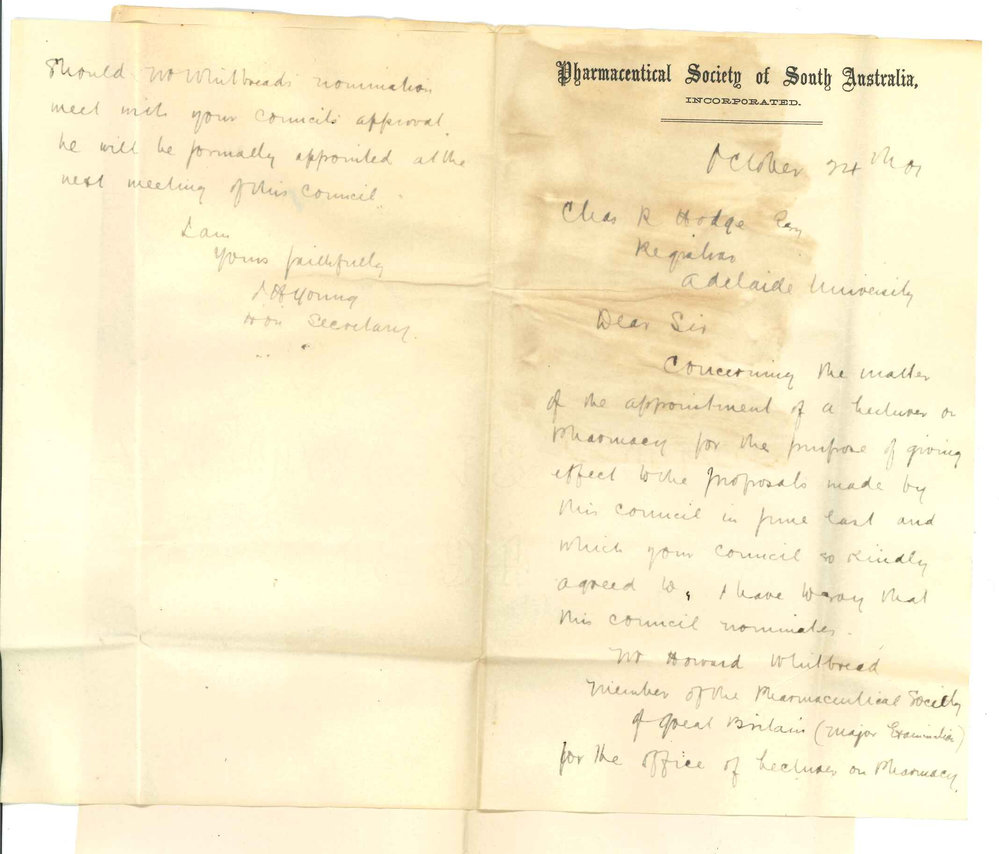 Pharmaceutical Society of South Australia,
INCORPORATED.
October 24th 01
Chas R Hodge Esq
Registrar
Adelaide University
Dear Sir
Concerning the matter
of the appointment of a Lecturer on
Pharmacy for the purpose of giving
effect to the proposals made by
this council in June last and
which your council so kindly
agreed to, I have to say that
this council nominates.
Mr Howard Whitbread
Member of the Pharmaceutical Society
of Great Britain (Major Examination)
for the office of Lecturer on Pharmacy
Should Mr Whitbreads nomination
meet with your councils approval
he will be formally appointed at the
next meeting of this council.
I am
Yours faithfully
J H Young
Hon Secretary.